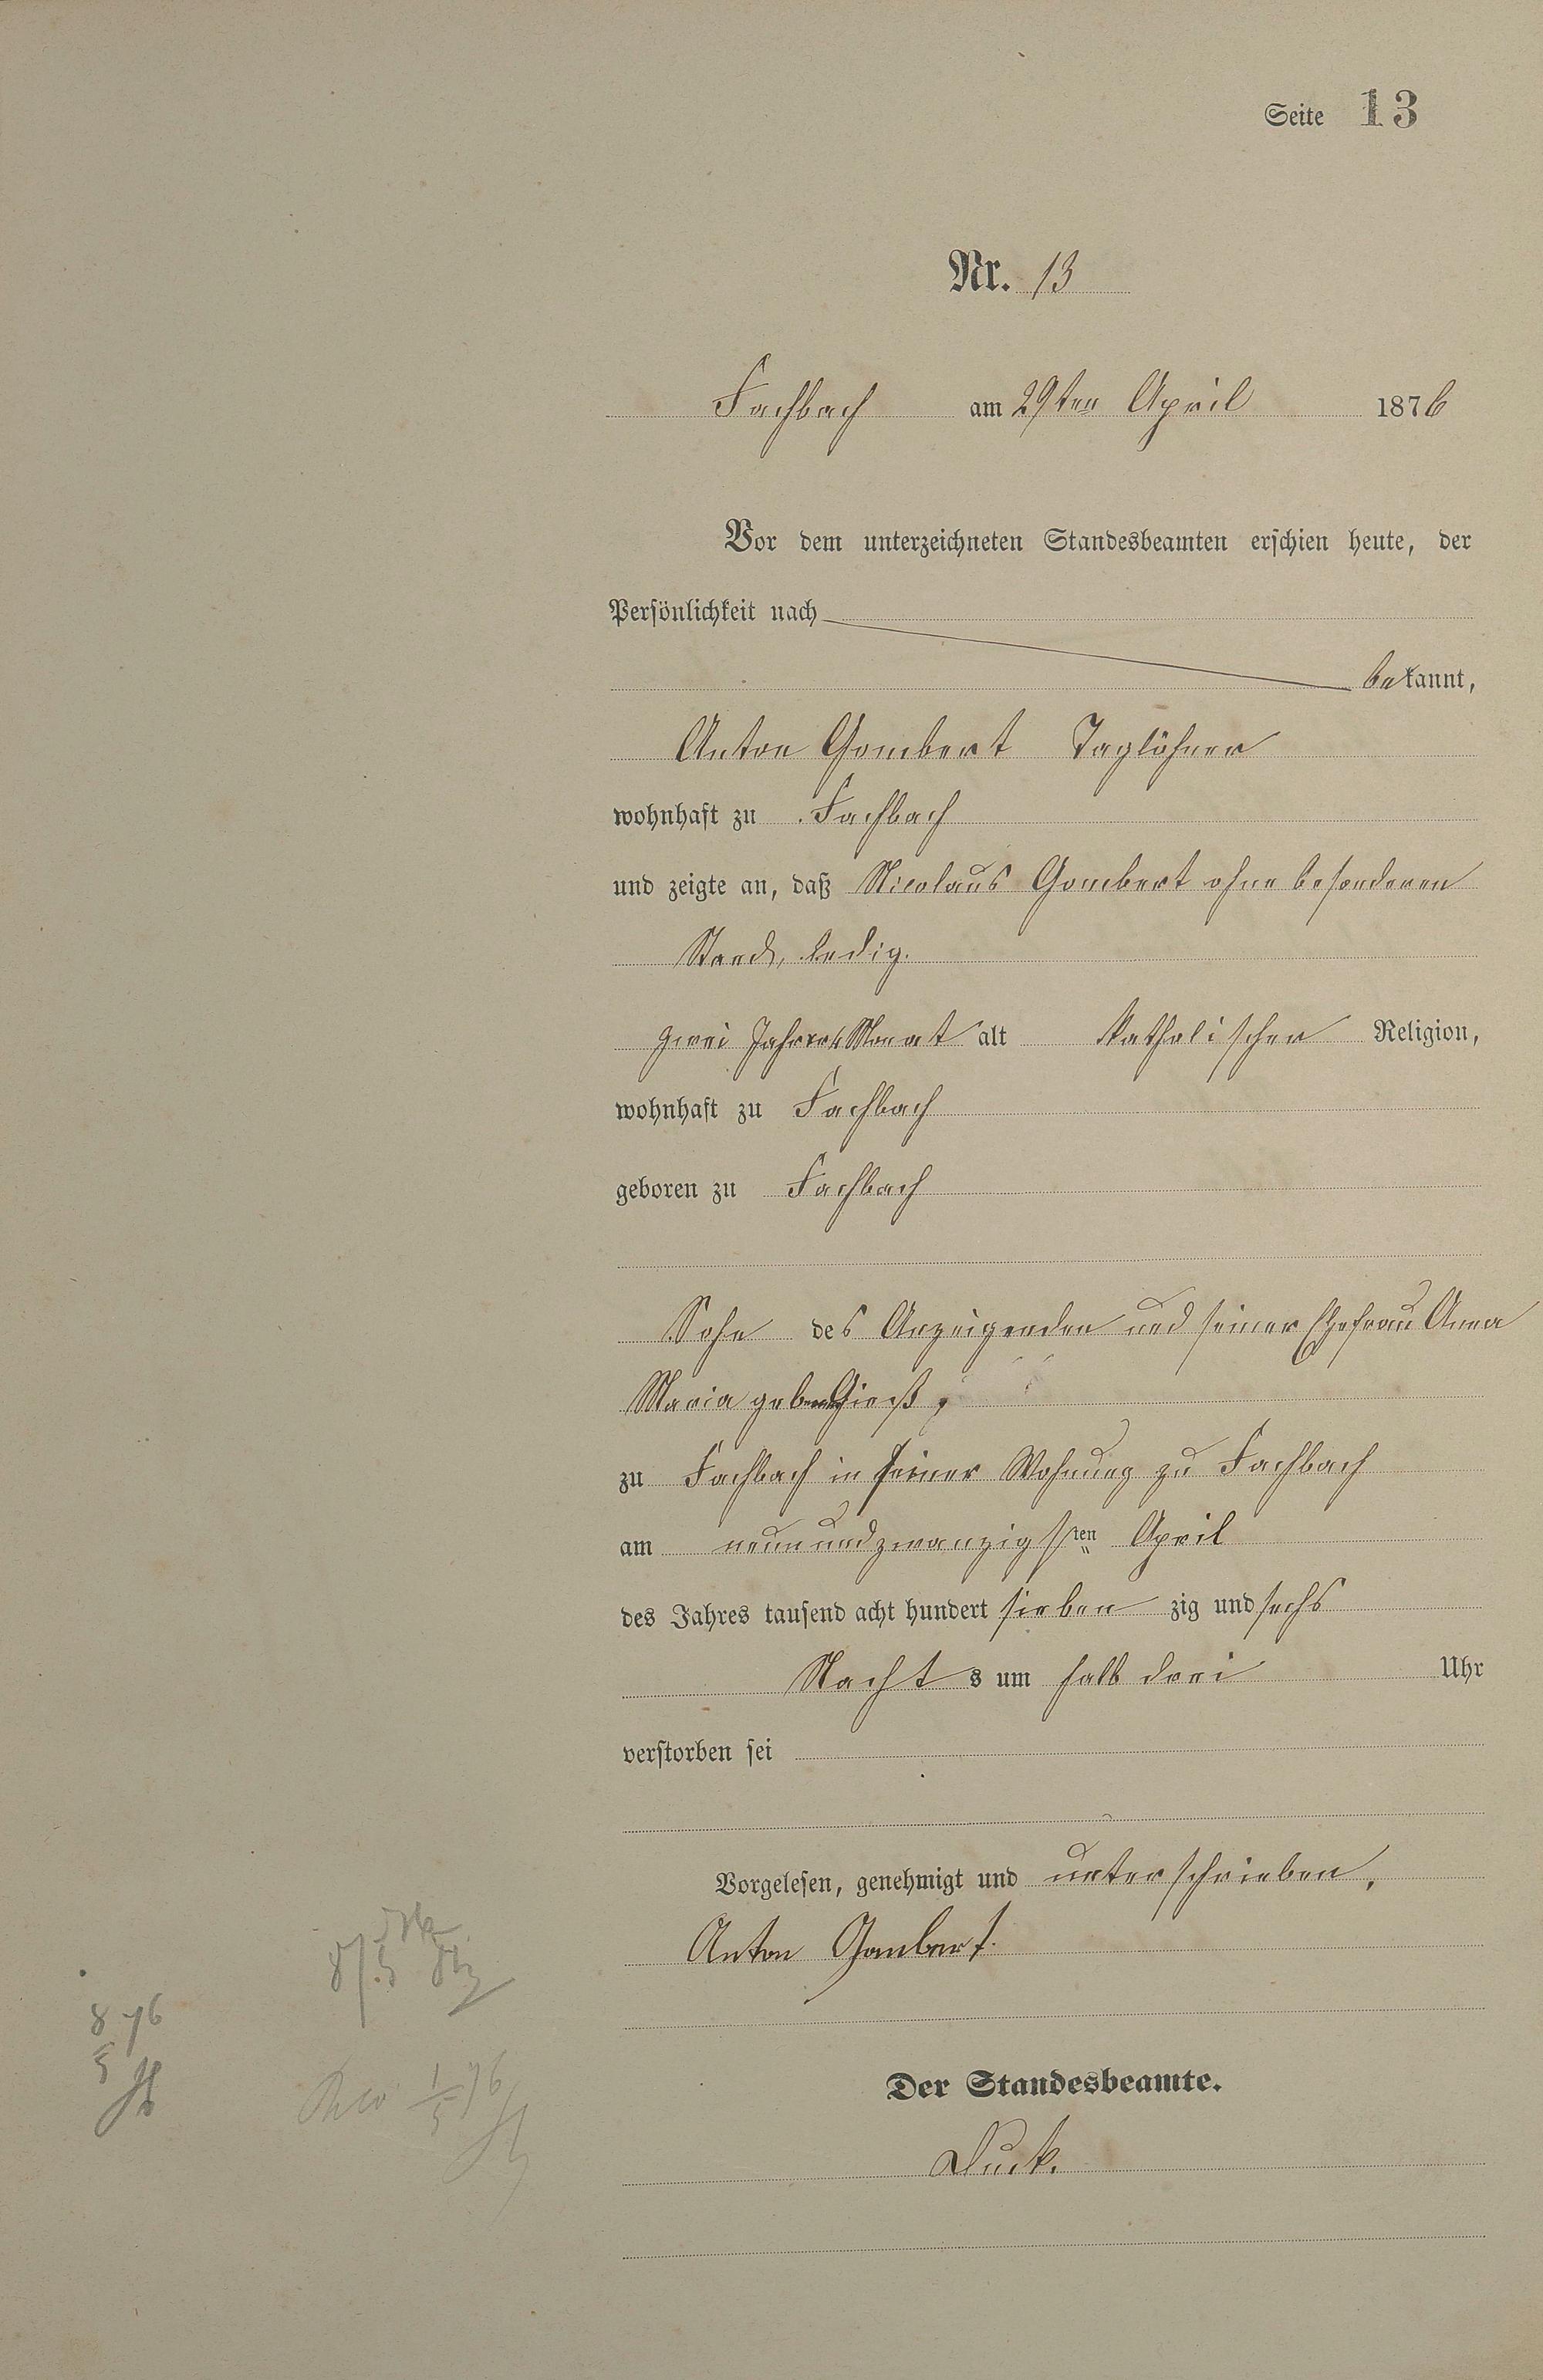 Seite 13
Nr. 13
Fachbach am 29ten April 1876
Vor dem unterzeichneten Standesbeamten erschien heute, der
Persönlichkeit nach
bekannt,
Anton Gombert Taglöhner
wohnhaft zu Fachbach
und zeigte an, daß Nicolaus Gombert ohne besonderen
Stand, ledig.
zwei Jahre Monat alt Katholischer Religion,
wohnhaft zu Fachbach
geboren zu Fachbach
Sohn des Anzeigenden und seiner Ehefrau Anna
Maria geboren
zu Fachbach in seiner Wohnung zu Fachbach
am neunundzwanzigsten April
des Jahres tausend acht hundert siebenzig und sechs
Nachts um halb drei Uhr
verstorben sei
Vorgelesen, genehmigt und unterschrieben.
Anton Gombert.
8 76
5
8/5
1/5 76
Der Standesbeamte.